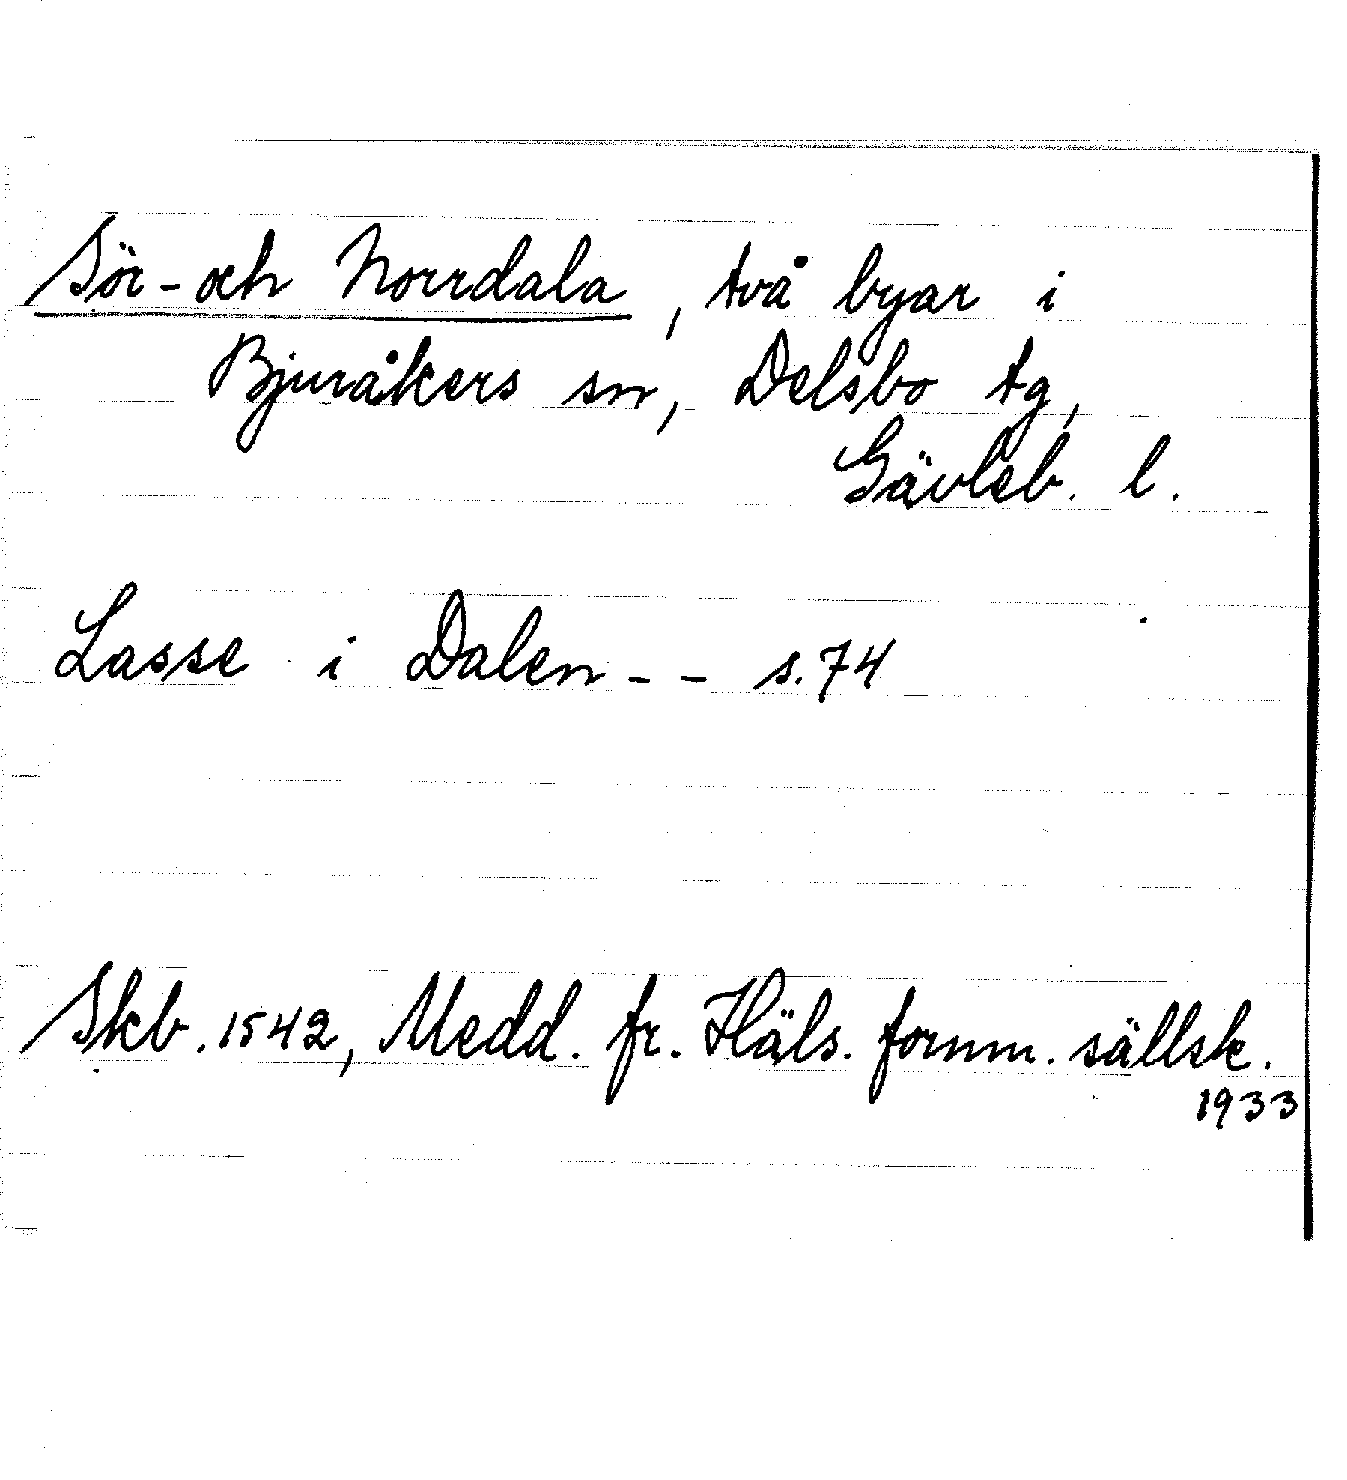 Sör- och Norrdala, två byar i
Bjuråkers sn, Delsbo tg,
Gävleb. l.
Lasse i Dalen - - s. 74
Skb. 1542, Medd. fr. Häls. fornm. sällsk.
1933